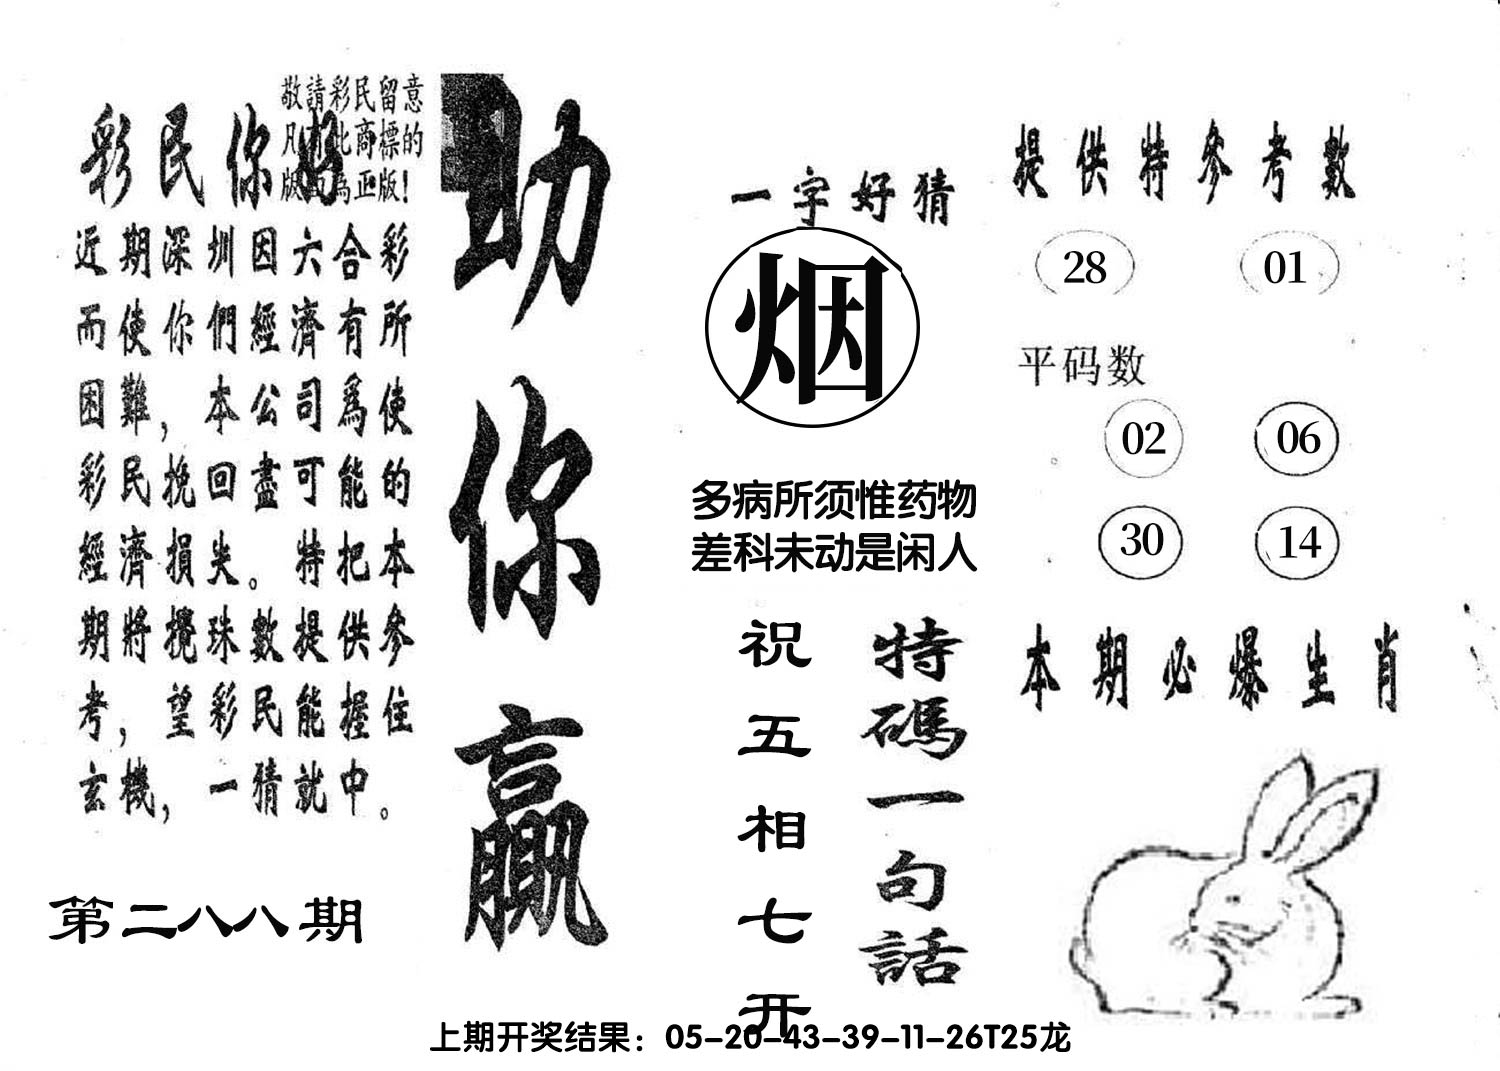 敬請彩民留意
凡有此商標的
版面為正版！
彩民你好
近期深圳因六合彩
而使你們經濟有所
困難，本公司爲使
彩民挽回盡可能的
經濟損失。特把本
期將攪珠數提供參
考，望彩民能握住
玄機，一猜就中。
第二八八期
助你贏
一字好猜
烟
多病所须惟药物
差科未动是闲人
特碼一句話
祝五相七开
提供特參考數
28 01
平码数
02 06
30 14
本期必爆生肖
上期开奖结果：05-20-43-39-11-26T25龙